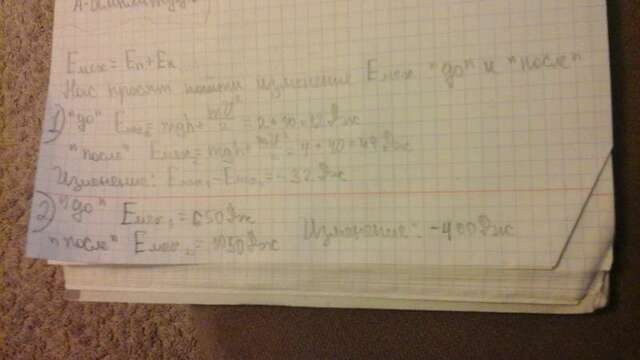 Eмех = Eп + Eк
Нас просят найти изменение Eмех "до" и "после"
1) "до" Eмех = mgh + mv²/2 =
"после" Eмех = mgh + mv²/2 =
Изменение: Eмех₁ - Eмех₂ = -32 Дж
2) "до" Eмех₁ = 650 Дж
"после" Eмех₂ = 1050 Дж Изменение: -400 Дж